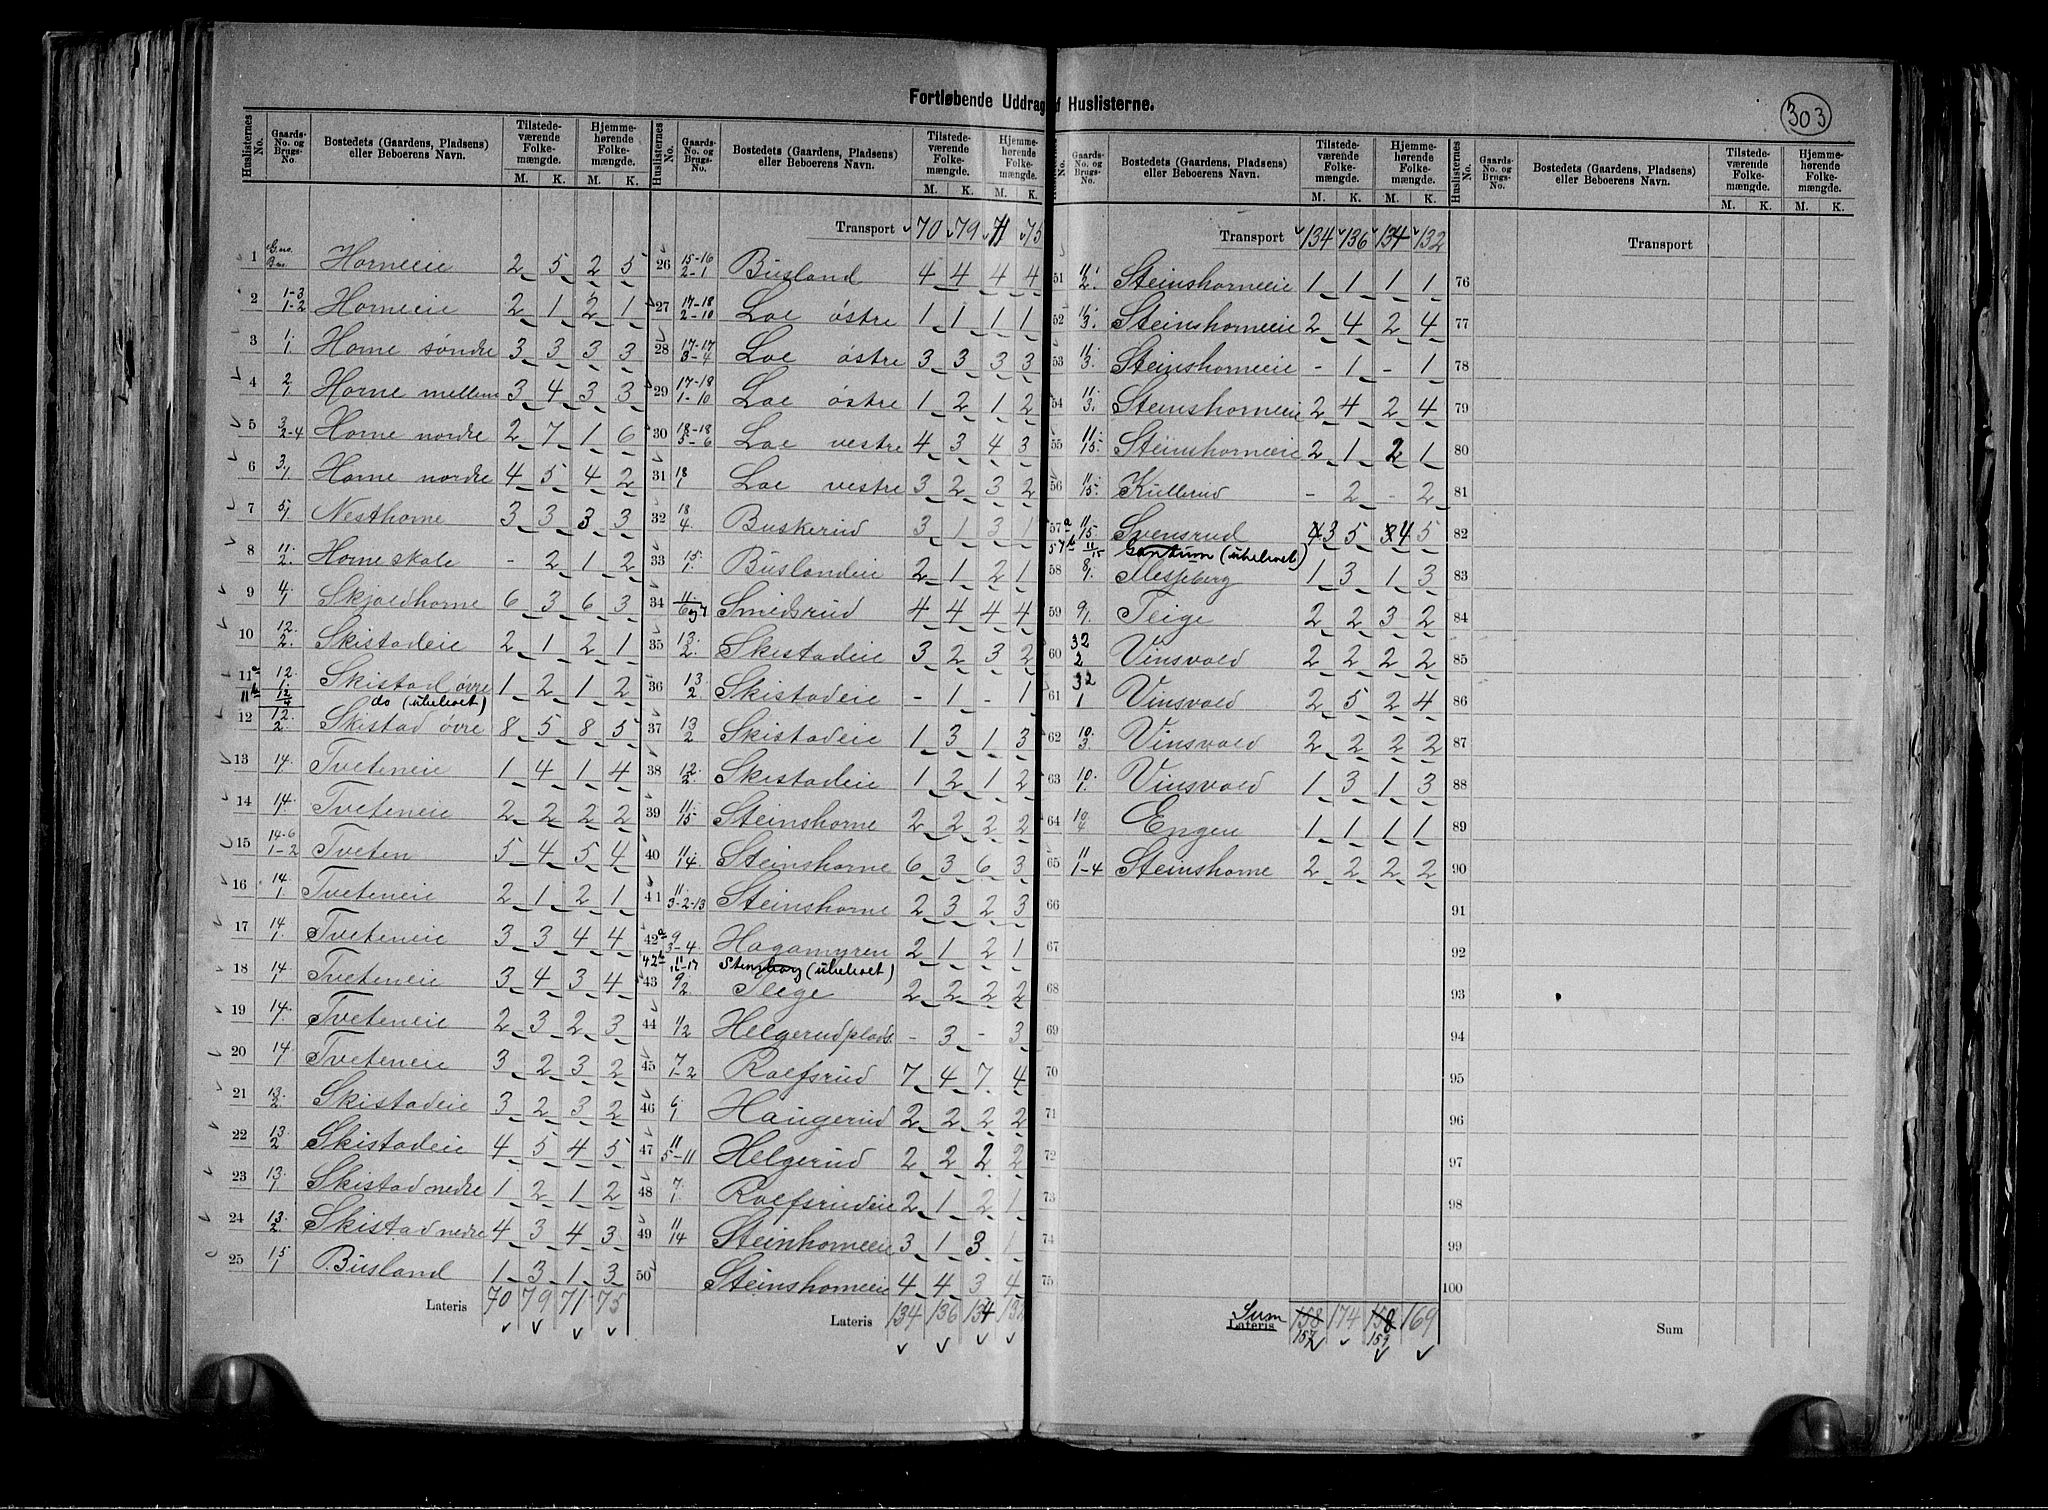 Fortløbende Uddrag af Huslisterne.
303
Huslisternes No. Gaards-No. og Brugs-No. Bostedets (Gaardens, Pladsens) eller Beboerens Navn. Tilstedeværende Folkemængde. M. K. Hjemmehørende Folkemængde. M. K.
1 G.no. Bno Horneeie 2 5 2 5
2 1-3 1-2 Horneeie 2 1 2 1
3 1/1 Horne søndre 3 3 3 3
4 2/1 Horne mellem 3 4 3 3
5 3/2-4 Horne nordre 2 7 1 6
6 3/1 Horne nordre 4 5 4 2
7 5/1 Nesthorne 3 3 3 3
8 11/2 Horneskale - 2 1 2
9 4/1 Skjoldhorne 6 3 6 3
10 12/2 Skistadeie 2 1 2 1
11a 12/1 Skistad øvre 1 2 1 2
11b 12/4 do (ubeboet)
12 12/2 Skistad øvre 8 5 8 5
13 14 Tveteneie 1 4 1 4
14 14/1 Tveteneie 2 2 2 2
15 14-6 1-2 Tveten 5 4 5 4
16 14/1 Tveteneie 2 1 2 1
17 14/1 Tveteneie 3 3 4 4
18 14/1 Tveteneie 3 4 3 4
19 14/1 Tveteneie 2 3 2 3
20 14/1 Tveteneie 3 2 3 2
21 13/2 Skistadeie 3 2 3 2
22 13/2 Skistadeie 4 5 4 5
23 13/1 Skistad nedre 1 2 1 2
24 13/2 Skistad nedre 4 3 4 3
25 15/1 Busland 1 3 1 3
Lateris 70 79 71 75
Huslisternes No. Gaards-No. og Brugs-No. Bostedets (Gaardens, Pladsens) eller Beboerens Navn. Tilstedeværende Folkemængde. M. K. Hjemmehørende Folkemængde. M. K.
Transport 70 79 71 75
26 15-16 2-1 Busland 4 4 4 4
27 17-18 2-10 Loe østre 1 1 1 1
28 17-17 3-4 Loe østre 3 3 3 3
29 17-18 1-10 Loe østre 1 2 1 2
30 18-18 5-6 Loe vestre 4 3 4 3
31 18/1 Loe vestre 3 2 3 2
32 18/4 Buskerud 3 1 3 1
33 15/1 Buslandeie 2 1 2 1
34 11/6 og 7 Smedsrud 4 4 4 4
35 13/2 Skistadeie 3 2 3 2
36 13/2 Skistadeie - 1 - 1
37 13/2 Skistadeie 1 3 1 3
38 12/2 Skistadeie 1 2 1 2
39 11/15 Steinshorne 2 2 2 2
40 11/14 Steinshorne 6 3 6 3
41 11/3-2-13 Steinshorne 2 3 2 3
42a 9/3-4 Hagamyren 2 1 2 1
42b 11-17 Stenborg (ubeboet)
43 9/2 Teige 2 2 2 2
44 11/2 Helgerudplads - 3 - 3
45 7/1-2 Rolfsrud 7 4 7 4
46 6/1 Haugerud 2 2 2 2
47 11/5-11 Helgerud 2 2 2 2
48 7/1 Rolfsrudeie 2 1 2 1
49 11/14 Steinhorneeie 3 1 3 1
50 Steinshorneeie 4 4 3 4
Lateris 134 136 134 132
No. Gaards-No. og Brugs-No. Bostedets (Gaardens, Pladsens) eller Beboerens Navn. Tilstedeværende Folkemængde. M. K. Hjemmehørende Folkemængde. M. K.
Transport 134 136 134 132
51 11/2 Steinshorneeie 1 1 1 1
52 11/3 Steinshorneeie 2 4 2 4
53 11/3 Steinshorneeie - 1 - 1
54 11/3 Steinshorneeie 2 4 2 4
55 11/15 Steinshorneeie 2 1 2 1
56 11/15 Kullerud - 2 - 2
57a 11/15 Svensrud 3 5 4 5
57b 11/15 (ubeboet)
58 8/1 Messeberg 1 3 1 3
59 9/1 Teige 2 2 3 2
60 32/2 Vinsvold 2 2 2 2
61 32/1 Vinsvold 2 5 2 4
62 10/3 Vinsvold 2 2 2 2
63 10/1 Vinsvold 1 3 1 3
64 10/4 Engen 1 1 1 1
65 11/1-4 Steinshorne 2 2 2 2
66
67
68
69
70
71
72
73
74
75
Sum Lateris 158 174 158 169
157 157
Huslisternes No. Gaards-No. og Brugs-No. Bostedets (Gaardens, Pladsens) eller Beboerens Navn. Tilstedeværende Folkemængde. M. K. Hjemmehørende Folkemængde. M. K.
Transport
76
77
78
79
80
81
82
83
84
85
86
87
88
89
90
91
92
93
94
95
96
97
98
99
100
Sum